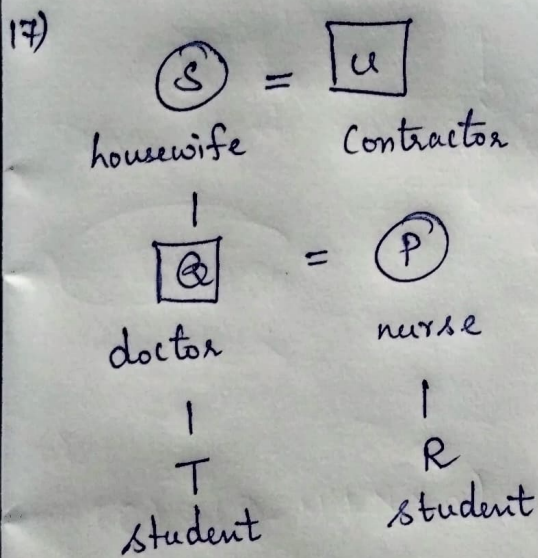 17)
S = U
housewife contractor
Q = P
doctor nurse
T R
student student